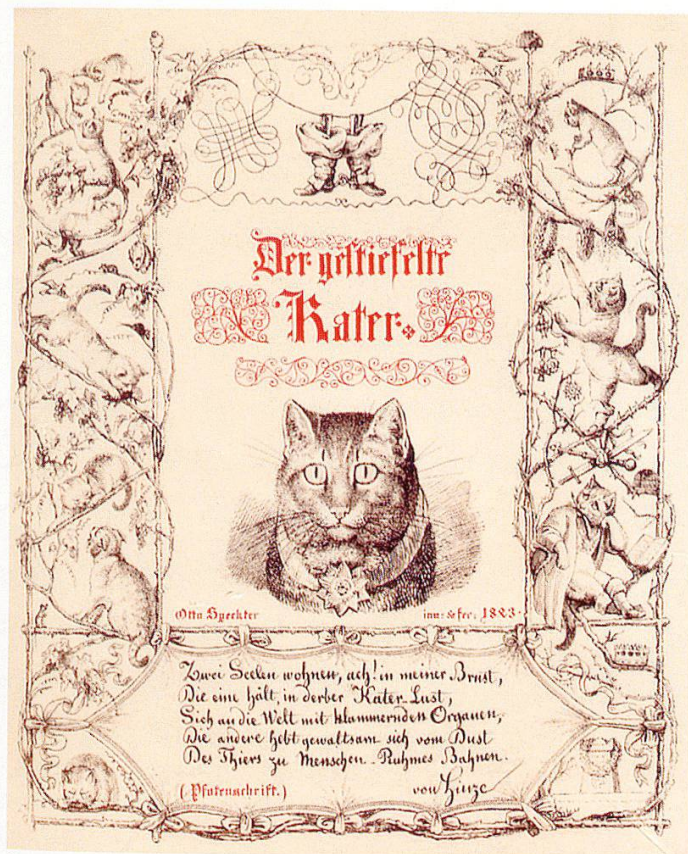 Der gestiefelte
Kater.
Otto Speckter inv: & fec: 1843.
Zwei Seelen wohnen, ach! in meiner Brust,
Die eine hält, in derber Kater-Lust,
Sich an die Welt mit klammernden Organen,
Die andere hebt gewaltsam sich vom Dust
Des Thiers zu Menschen-Ruhmes Bahnen.
(Pfotenschrift.) von Hinze